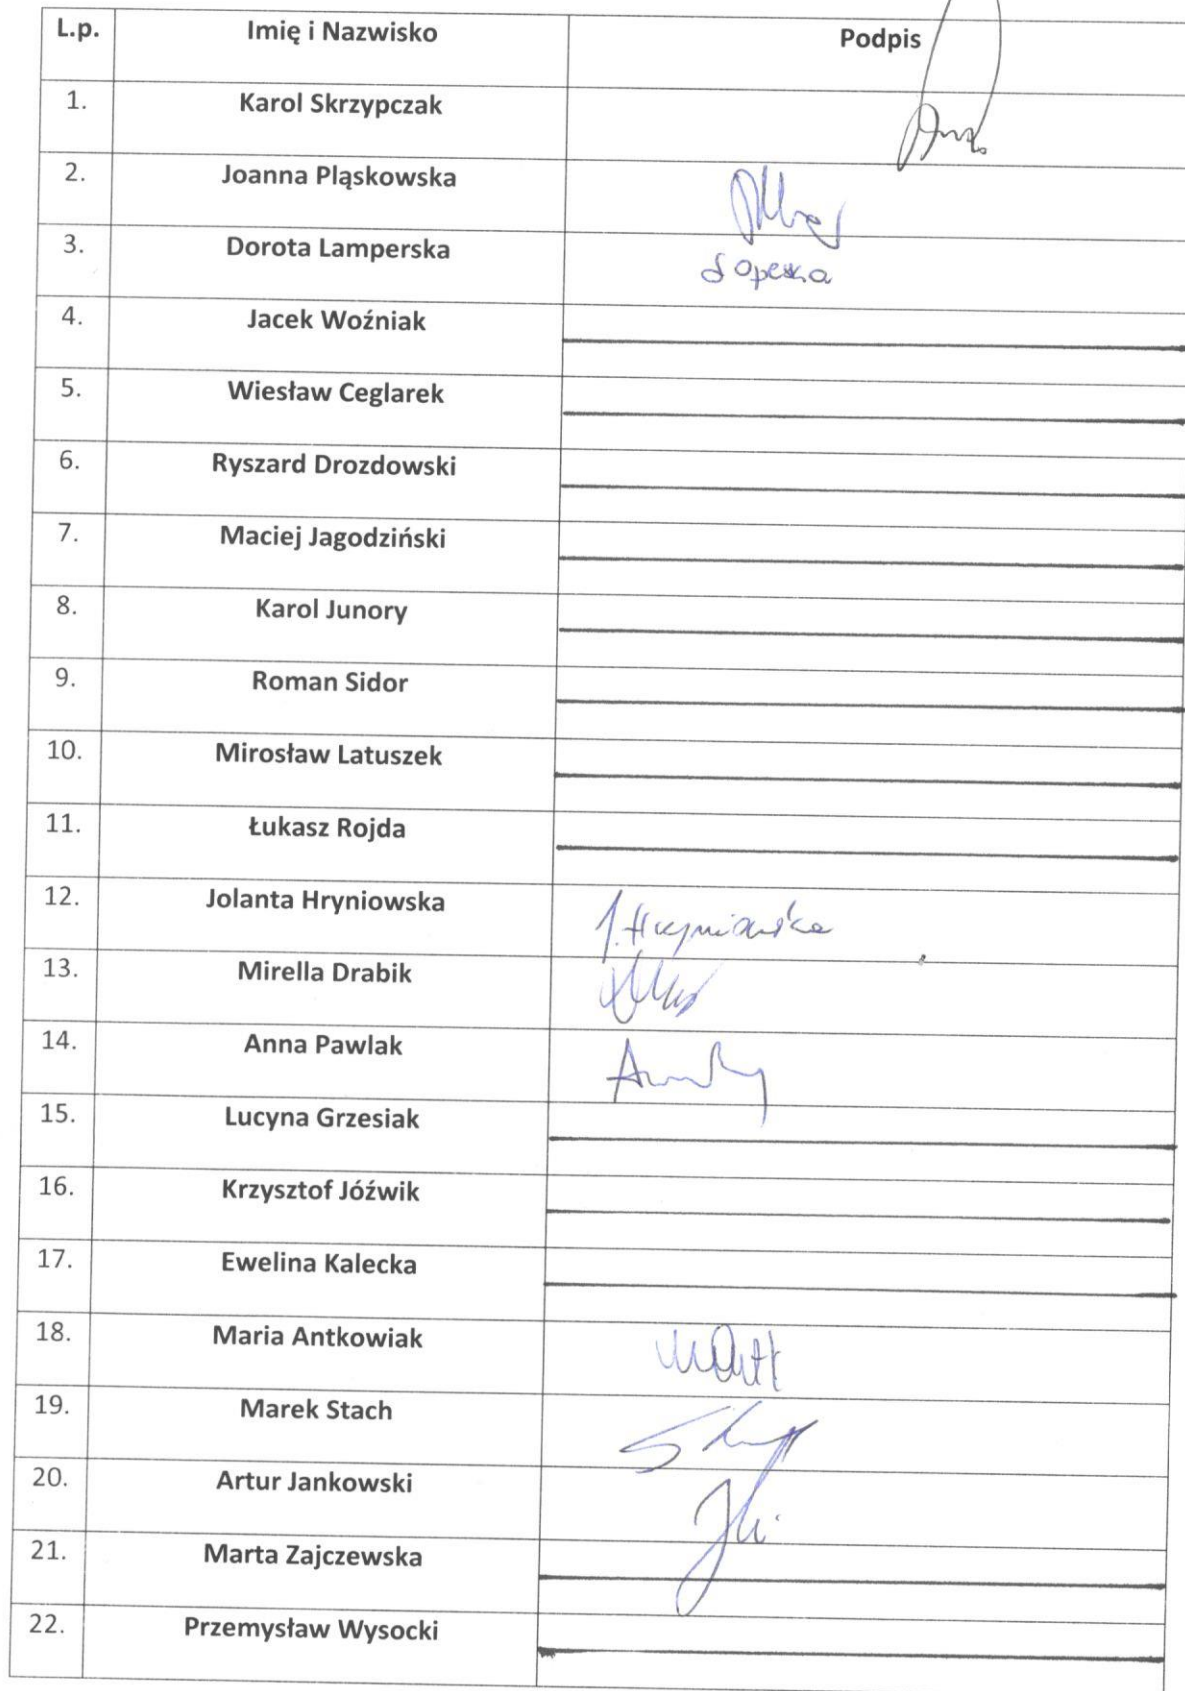 L.p. Imię i Nazwisko Podpis
1. Karol Skrzypczak
2. Joanna Pląskowska
3. Dorota Lamperska
4. Jacek Woźniak
5. Wiesław Ceglarek
6. Ryszard Drozdowski
7. Maciej Jagodziński
8. Karol Junory
9. Roman Sidor
10. Mirosław Latuszek
11. Łukasz Rojda
12. Jolanta Hryniowska J. Hryniowska
13. Mirella Drabik
14. Anna Pawlak
15. Lucyna Grzesiak
16. Krzysztof Jóźwik
17. Ewelina Kalecka
18. Maria Antkowiak
19. Marek Stach
20. Artur Jankowski
21. Marta Zajczewska
22. Przemysław Wysocki